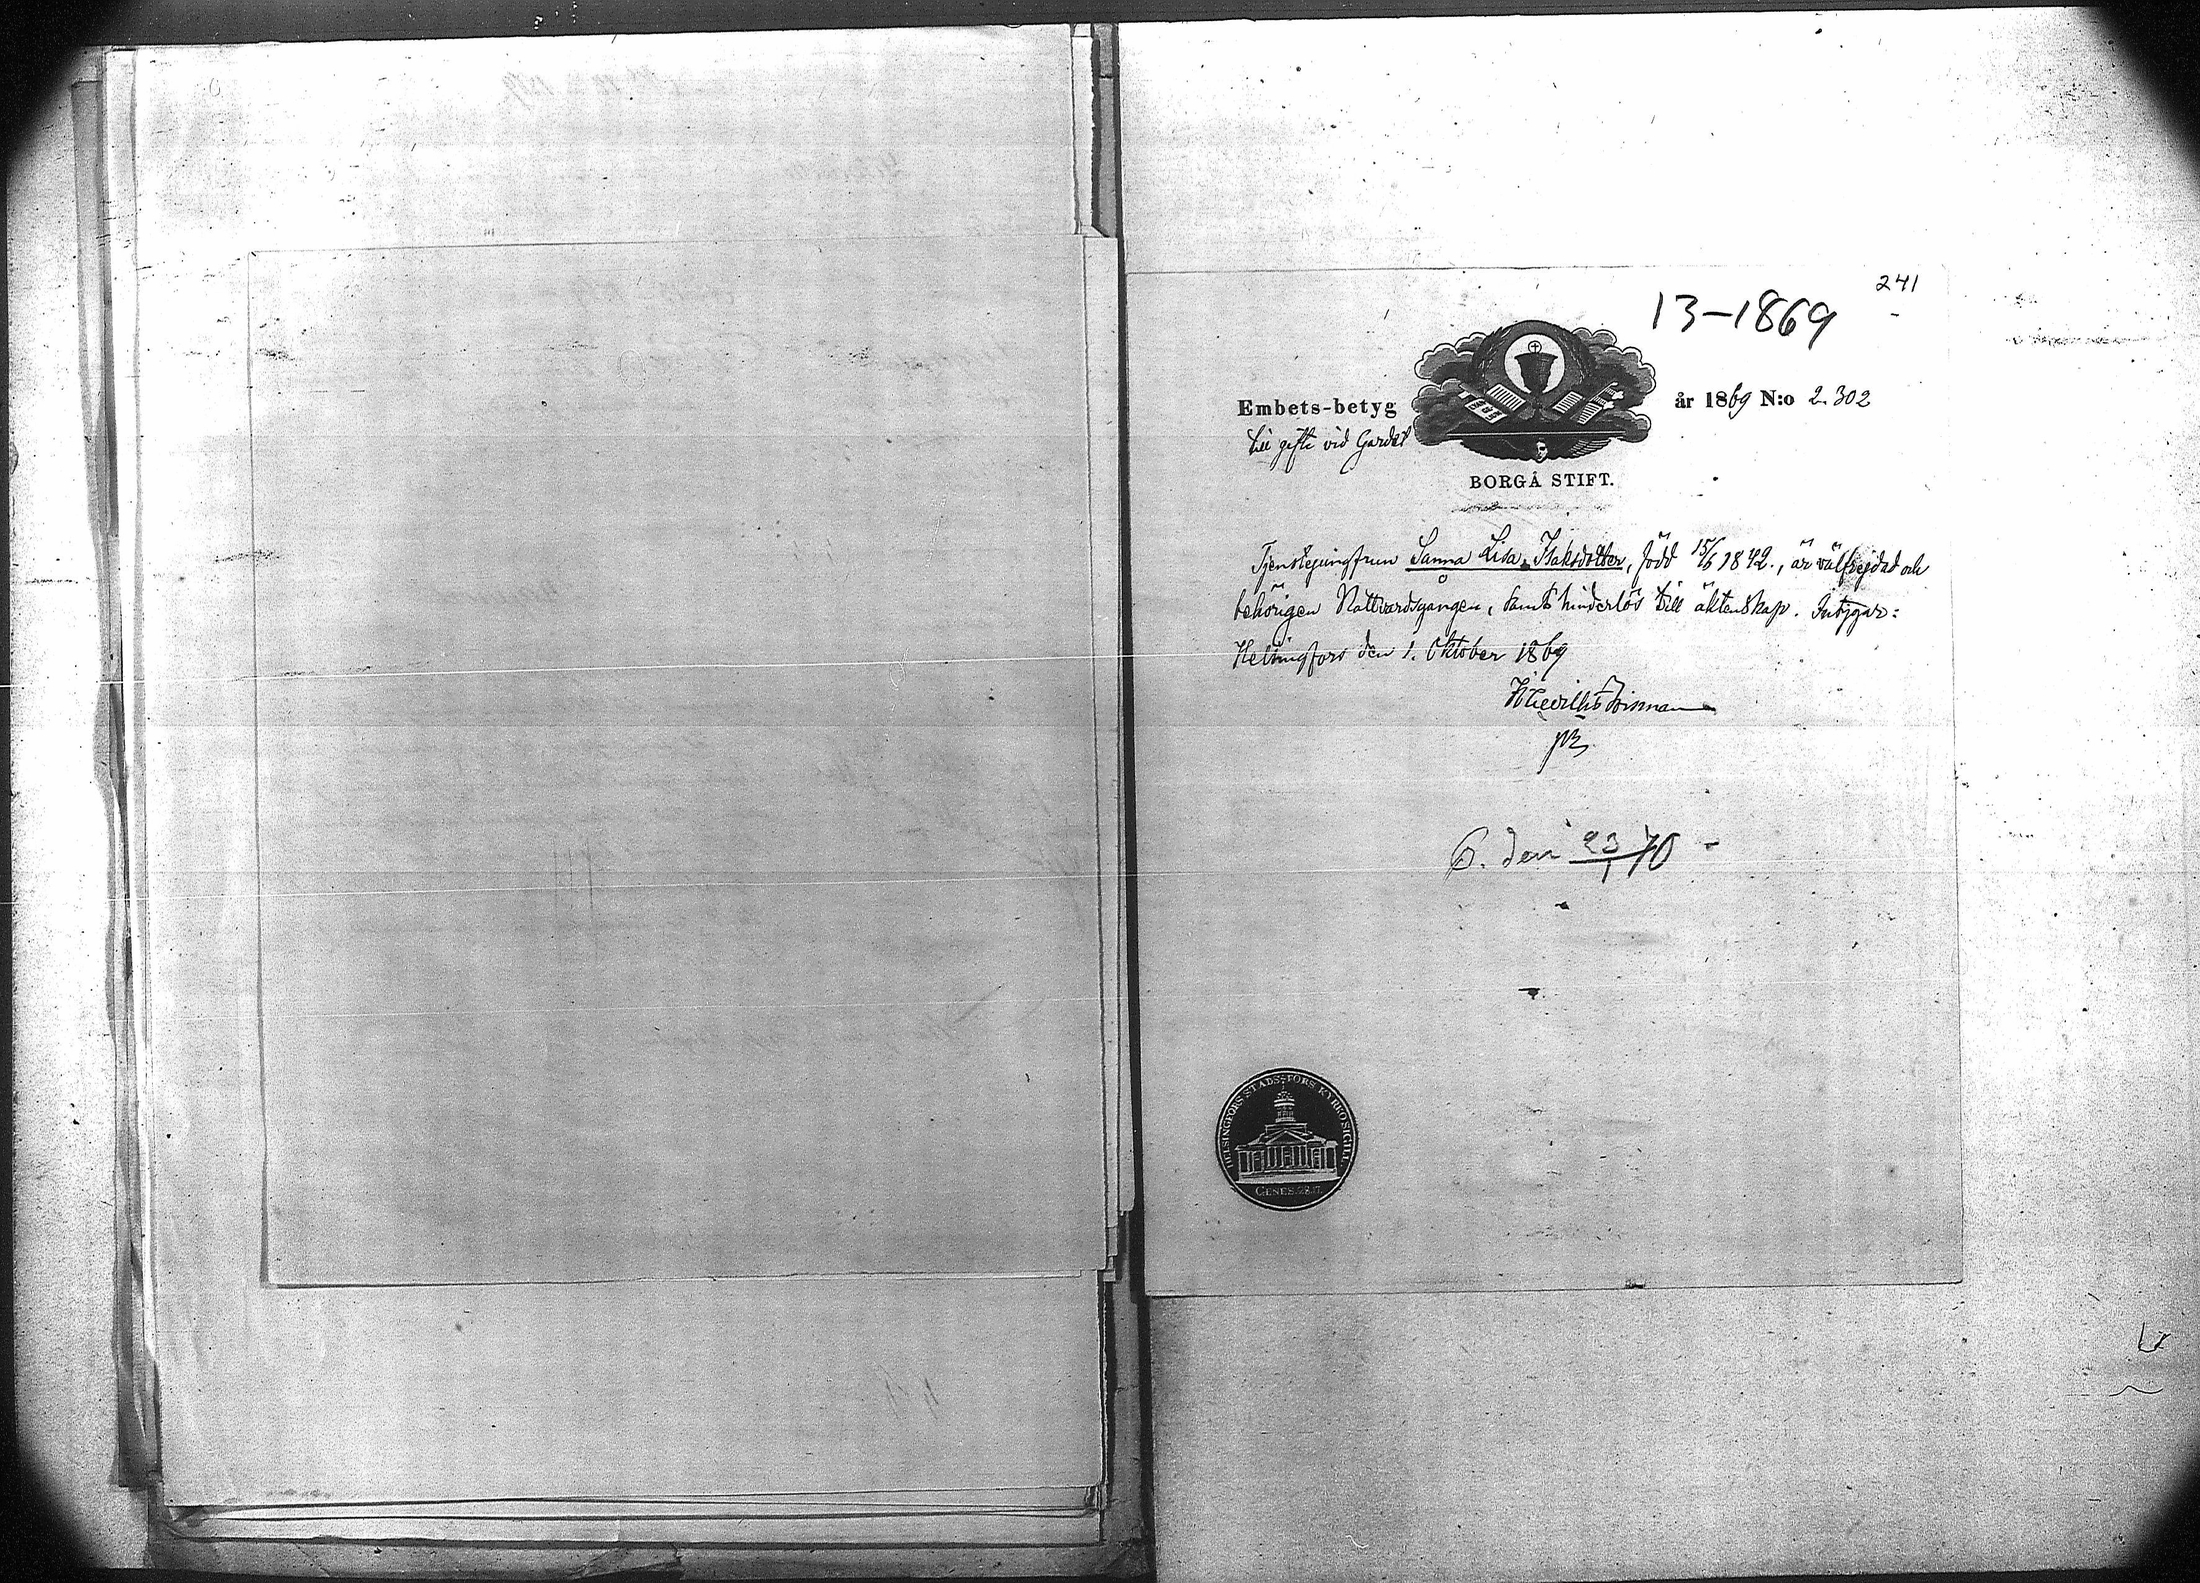 241
13–1869
Embets-betyg år 1869 N:o 2.302
till gifte vid Gardet
BORGÅ STIFT.
Tjenstejungfrun Sanna Lisa Isaksdotter, född 15/6 1842., är välfrejdad och
behörigen Nattvardsgången, samt hinderlös till äktenskap. Intygar:
Helsingfors den 1. Oktober 1869
den 23/1 70
HELSINGFORS STADS-FÖRS. KYRKO SIGILL.
GENES. 28.17.